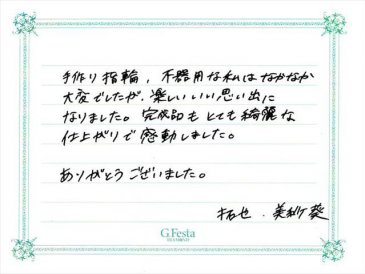 手作り指輪、不器用な私はなかなか
大変でしたが、楽しいいい思い出に
なりました。完成品もとても綺麗な
仕上がりで感動しました。
ありがとうございました。
拓也・美紗葵
G.Festa